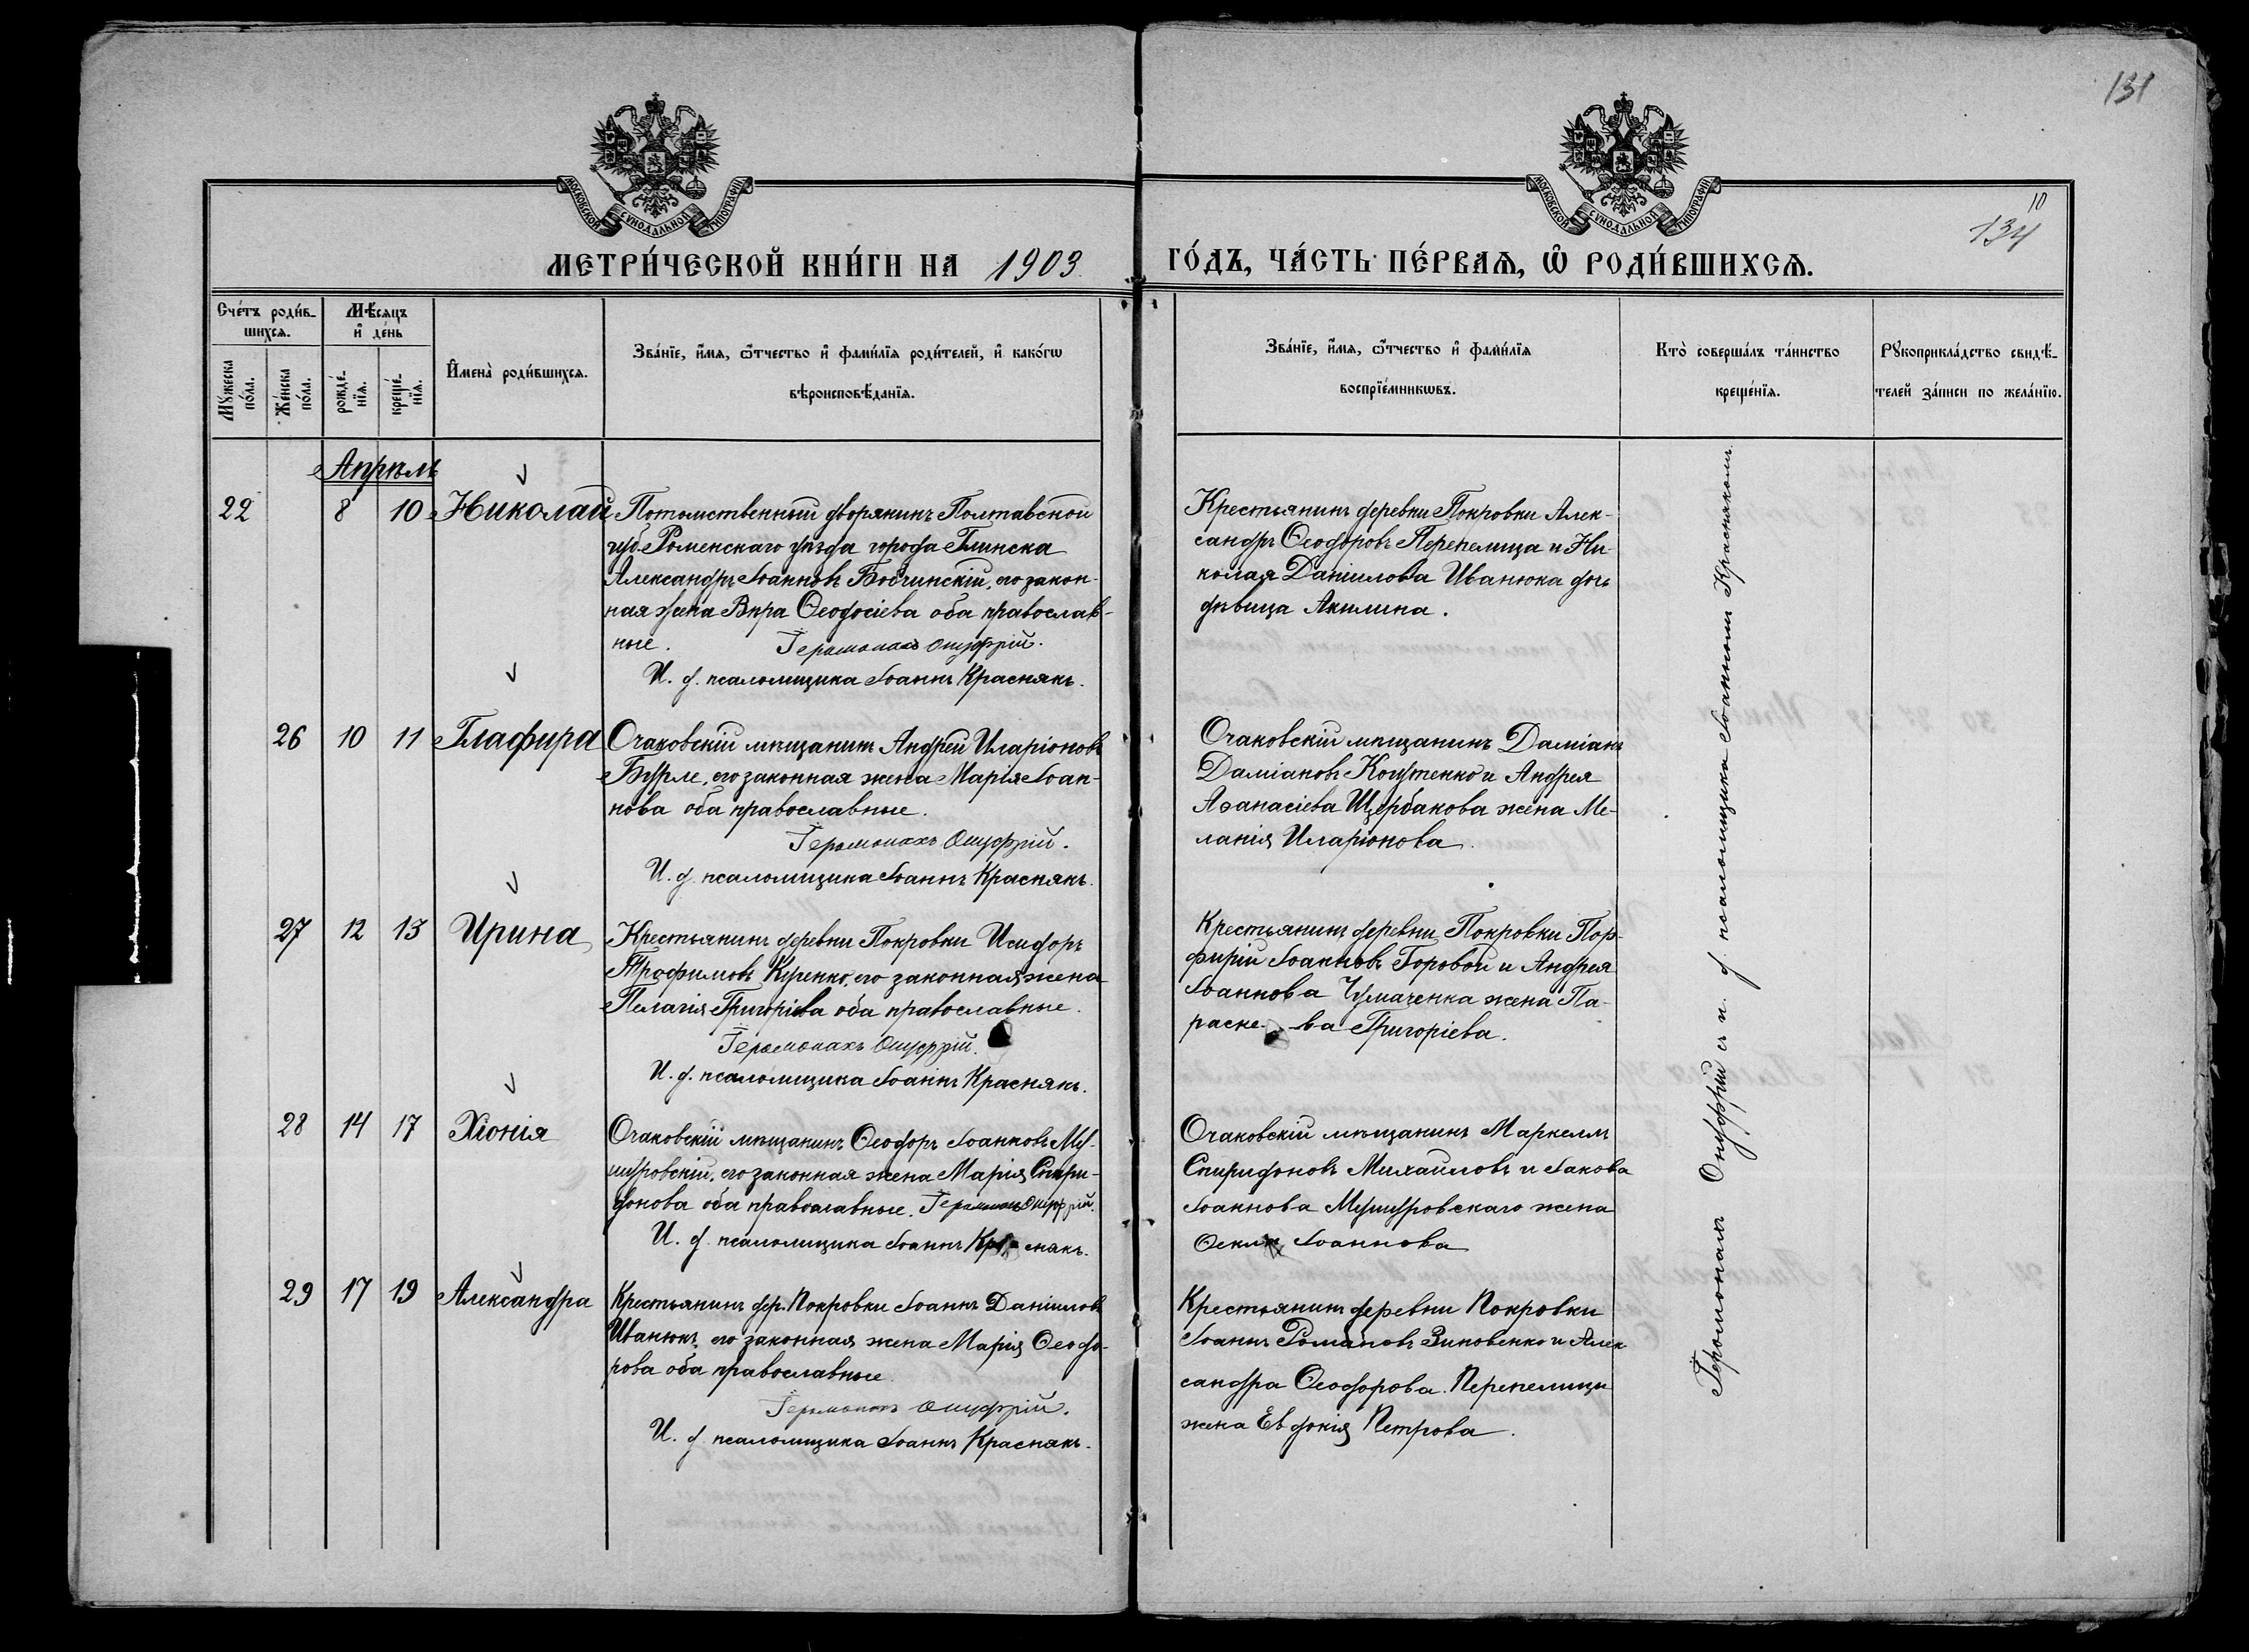 131
МОСКОВСКОЙ СѴНОДАЛЬНОЙ ТИПОГРАФІИ
МОСКОВСКОЙ СѴНОДАЛЬНОЙ ТИПОГРАФІИ
10
134
МЕТРИ́ЧЕСКОЙ КНИ́ГИ НА 1903 ГО́ДЪ, ЧА́СТЬ ПЕ́РВАѦ, Ѡ РОДИ́ВШИХСѦ.
Сче́тъ роди́в-
шихсѧ.
Мѣ́сѧцъ
и҆ де́нь
Мꙋ́жеска
по́ла.
Же́нска
по́ла.
рожде́-
нїѧ.
креще́-
нїѧ.
И҆мена̀ роди́вшихсѧ.
Зва́нїе, и҆́мѧ, ѻ҆́тчество и҆ фами́лїѧ роди́телей, и҆ како́гѡ
вѣроисповѣ́данїѧ.
Зва́нїе, и҆́мѧ, ѻ҆́тчество и҆ фами́лїѧ
воспрїе́мникѡвъ.
Кто̀ соверша́лъ та́инство
креще́нїѧ.
Рꙋкоприкла́дство свидѣ́-
телей за́писи по жела́нїю.
Апрѣль
22 8 10 Николай
Потомственный дворянинъ Полтавской
губ. Роменскаго уѣзда города Глинска
Александръ Іоанновъ Бобчинскій, его закон-
ная жена Вѣра Ѳеодосіева оба православ-
ные. Іеромонахъ Онуфрій.
И. д. псаломщика Іоаннъ Краснякъ.
Крестьянинъ деревни Покровки Алек-
сандръ Ѳеодоровъ Перепелица и Ни-
колая Даніилова Иванюка дочь
дѣвица Акилина.
26 10 11 Глафира
Очаковскій мѣщанинъ Андрей Иларіоновъ
Бурле, его законная жена Марія Іоан-
нова оба православные.
Іеромонахъ Онуфрій.
И. д. псаломщика Іоаннъ Краснякъ.
Очаковскій мѣщанинъ Даміанъ
Даміановъ Кошутенко и Андрея
Аѳанасіева Щербакова жена Ме-
ланія Иларіонова.
27 12 13 Ирина
Крестьянинъ деревни Покровки Исидоръ
Трофимовъ Куренко, его законная жена
Пелагія Григоріева оба православные.
Іеромонахъ Онуфрій.
И. д. псаломщика Іоаннъ Краснякъ.
Крестьянинъ деревни Покровки Пор-
фирій Іоанновъ Боровой и Андрея
Іоаннова Чумаченка жена Па-
раске-ва Григоріева.
28 14 17 Хіонія
Очаковскій мѣщанинъ Ѳеодоръ Іоанновъ Му-
шуровскій, его законная жена Марія Спири-
донова оба православные. Іеромонахъ Онуфрій.
И. д. псаломщика Іоаннъ Краснякъ.
Очаковскій мѣщанинъ Маркеллъ
Спиридоновъ Михайловъ и Іакова
Іоаннова Мушуровскаго жена
Іоаннова
29 17 19 Александра
Крестьянинъ дер. Покровки Іоаннъ Даніиловъ
Иванюкъ, его законная жена Марія Ѳеодо-
рова оба православные.
Іеромонахъ Онуфрій.
И. д. псаломщика Іоаннъ Краснякъ.
Крестьянинъ деревни Покровки
Іоаннъ Романовъ Зиновенко и Алек-
сандра Ѳеодорова Перепелици
жена Евдокія Петрова.
Іеромонахъ Онуфрій съ и. д. псаломщика Іоанномъ Краснякомъ.